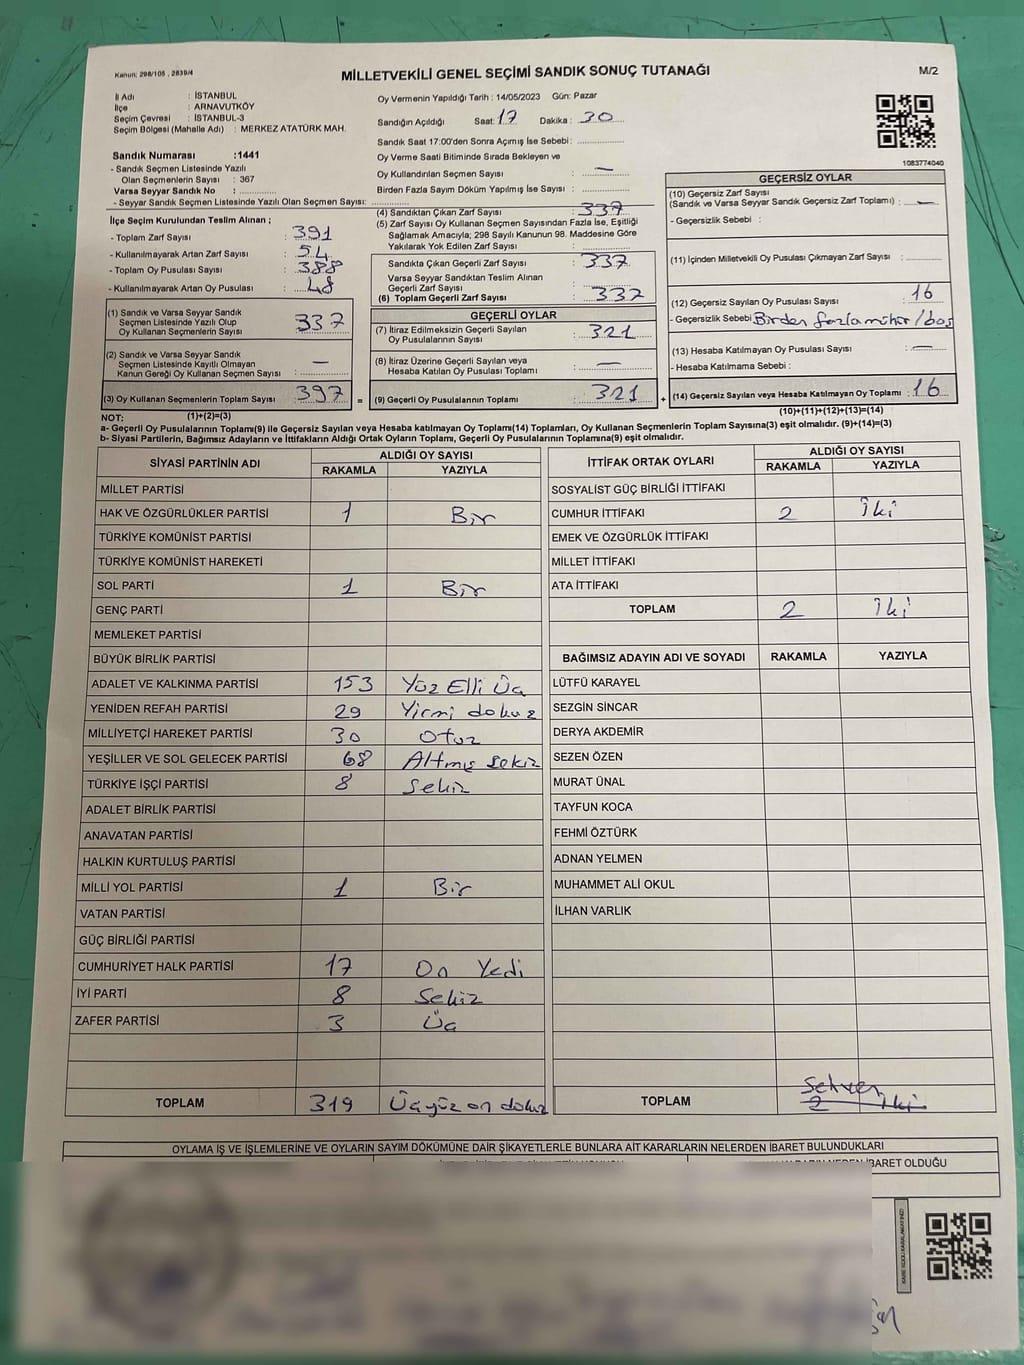 Kanun: 298/105 , 2839/4
MİLLETVEKİLİ GENEL SEÇİMİ SANDIK SONUÇ TUTANAĞI
M/2
İl Adı : İSTANBUL
İlçe : ARNAVUTKÖY
Seçim Çevresi : İSTANBUL-3
Seçim Bölgesi (Mahalle Adı) : MERKEZ ATATÜRK MAH.
Sandık Numarası :1441
- Sandık Seçmen Listesinde Yazılı
Olan Seçmenlerin Sayısı : 367
Varsa Seyyar Sandık No :
- Seyyar Sandık Seçmen Listesinde Yazılı Olan Seçmen Sayısı:
Oy Vermenin Yapıldığı Tarih : 14/05/2023 Gün: Pazar
Sandığın Açıldığı Saat: 17 Dakika : 30
Sandık Saat 17:00'den Sonra Açımış İse Sebebi:
Oy Verme Saati Bitiminde Sırada Bekleyen ve
Oy Kullandırılan Seçmen Sayısı : —
Birden Fazla Sayım Döküm Yapılmış İse Sayısı :
1083774040
İlçe Seçim Kurulundan Teslim Alınan ;
- Toplam Zarf Sayısı : 391
- Kullanılmayarak Artan Zarf Sayısı : 54
- Toplam Oy Pusulası Sayısı : 388
- Kullanılmayarak Artan Oy Pusulası : 48
(1) Sandık ve Varsa Seyyar Sandık
Seçmen Listesinde Yazılı Olup
Oy Kullanan Seçmenlerin Sayısı : 337
(2) Sandık ve Varsa Seyyar Sandık
Seçmen Listesinde Kayıtlı Olmayan
Kanun Gereği Oy Kullanan Seçmen Sayısı : —
(3) Oy Kullanan Seçmenlerin Toplam Sayısı : 397 =
(4) Sandıktan Çıkan Zarf Sayısı : 337
(5) Zarf Sayısı Oy Kullanan Seçmen Sayısından Fazla İse, Eşitliği
Sağlamak Amacıyla; 298 Sayılı Kanunun 98. Maddesine Göre
Yakılarak Yok Edilen Zarf Sayısı :
Sandıkta Çıkan Geçerli Zarf Sayısı : 337
Varsa Seyyar Sandıktan Teslim Alınan
Geçerli Zarf Sayısı :
(6) Toplam Geçerli Zarf Sayısı : 337
GEÇERLİ OYLAR
(7) İtiraz Edilmeksizin Geçerli Sayılan
Oy Pusulalarının Sayısı : 321
(8) İtiraz Üzerine Geçerli Sayılan veya
Hesaba Katılan Oy Pusulası Toplamı : —
(9) Geçerli Oy Pusulalarının Toplamı : 321 +
GEÇERSİZ OYLAR
(10) Geçersiz Zarf Sayısı
(Sandık ve Varsa Seyyar Sandık Geçersiz Zarf Toplamı) : —
- Geçersizlik Sebebi :
(11) İçinden Milletvekili Oy Pusulası Çıkmayan Zarf Sayısı :
(12) Geçersiz Sayılan Oy Pusulası Sayısı : 16
- Geçersizlik Sebebi Birden fazla mühür/bas
(13) Hesaba Katılmayan Oy Pusulası Sayısı : —
- Hesaba Katılmama Sebebi :
(14) Geçersiz Sayılan veya Hesaba Katılmayan Oy Toplamı : 16
NOT: (1)+(2)=(3) (10)+(11)+(12)+(13)=(14)
a- Geçerli Oy Pusulalarının Toplamı(9) ile Geçersiz Sayılan veya Hesaba Katılmayan Oy Toplamı(14) Toplamları, Oy Kullanan Seçmenlerin Toplam Sayısına(3) eşit olmalıdır. (9)+(14)=(3)
b- Siyasi Partilerin, Bağımsız Adayların ve İttifakların Aldığı Ortak Oyların Toplamı, Geçerli Oy Pusulalarının Toplamına(9) eşit olmalıdır.
SİYASİ PARTİNİN ADI ALDIĞI OY SAYISI
RAKAMLA YAZIYLA
MİLLET PARTİSİ
HAK VE ÖZGÜRLÜKLER PARTİSİ 1 Bir
TÜRKİYE KOMÜNİST PARTİSİ
TÜRKİYE KOMÜNİST HAREKETİ
SOL PARTİ 1 Bir
GENÇ PARTİ
MEMLEKET PARTİSİ
BÜYÜK BİRLİK PARTİSİ
ADALET VE KALKINMA PARTİSİ 153 Yüz Elli Üç
YENİDEN REFAH PARTİSİ 29 Yirmi dokuz
MİLLİYETÇİ HAREKET PARTİSİ 30 Otuz
YEŞİLLER VE SOL GELECEK PARTİSİ 68 Altmış sekiz
TÜRKİYE İŞÇİ PARTİSİ 8 Sekiz
ADALET BİRLİK PARTİSİ
ANAVATAN PARTİSİ
HALKIN KURTULUŞ PARTİSİ
MİLLİ YOL PARTİSİ 1 Bir
VATAN PARTİSİ
GÜÇ BİRLİĞİ PARTİSİ
CUMHURİYET HALK PARTİSİ 17 On Yedi
İYİ PARTİ 8 Sekiz
ZAFER PARTİSİ 3 Üç
TOPLAM 319 Üçyüz on dokuz
İTTİFAK ORTAK OYLARI ALDIĞI OY SAYISI
RAKAMLA YAZIYLA
SOSYALİST GÜÇ BİRLİĞİ İTTİFAKI
CUMHUR İTTİFAKI 2 İki
EMEK VE ÖZGÜRLÜK İTTİFAKI
MİLLET İTTİFAKI
ATA İTTİFAKI
TOPLAM 2 İki
BAĞIMSIZ ADAYIN ADI VE SOYADI RAKAMLA YAZIYLA
LÜTFÜ KARAYEL
SEZGİN SİNCAR
DERYA AKDEMİR
SEZEN ÖZEN
MURAT ÜNAL
TAYFUN KOCA
FEHMİ ÖZTÜRK
ADNAN YELMEN
MUHAMMET ALİ OKUL
İLHAN VARLIK
Sehven
TOPLAM 2 iki
OYLAMA İŞ VE İŞLEMLERİNE VE OYLARIN SAYIM DÖKÜMÜNE DAİR ŞİKAYETLERLE BUNLARA AİT KARARLARIN NELERDEN İBARET BULUNDUKLARI
İBARET OLDUĞU